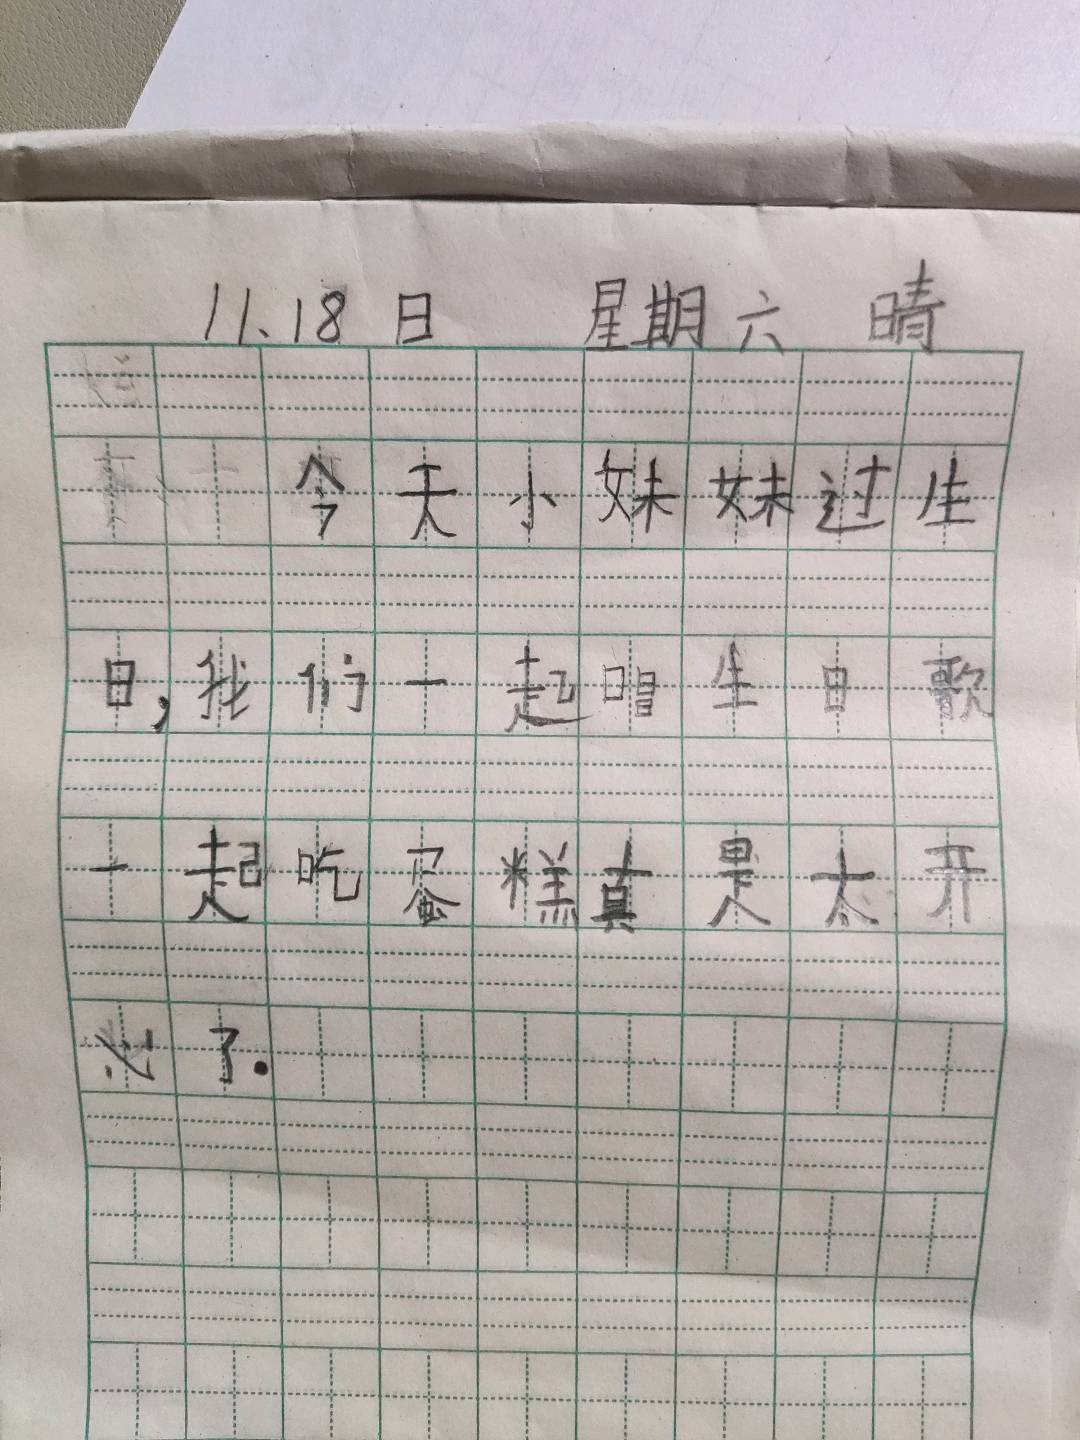 11.18日 星期六 晴
今天小妹妹过生
日,我们一起唱生日歌
一起吃蛋糕真是太开
心了.